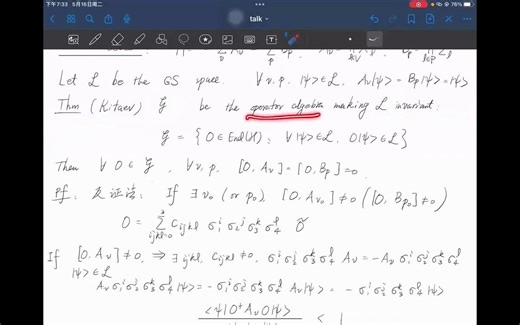 下午7:33 5月16日周二
talk
76%
Let L be the GS space. ∀ v, p. |ψ> ∈ L, A_v|ψ> = B_p|ψ> = |ψ>
Thm (Kitaev) G be the operator algebra making L invariant:
G = { O ∈ End(H) : ∀ |ψ> ∈ L, O|ψ> ∈ L }
Then ∀ O ∈ G, ∀ v, p, [O, A_v] = [O, B_p] = 0.
pf: 反证法: If ∃ v_0 (or p_0), [O, A_{v_0}] ≠ 0 ([O, B_{p_0}] ≠ 0)
O = Σ_{ijkl=0}^3 C_{ijkl} σ_1^i σ_2^j σ_3^k σ_4^l
If [O, A_v] ≠ 0, ⇒ ∃ ijkl, C_{ijkl} ≠ 0, σ_1^i σ_2^j σ_3^k σ_4^l A_v = -A_v σ_1^i σ_2^j σ_3^k σ_4^l
|ψ> ∈ L
A_v σ_1^i σ_2^j σ_3^k σ_4^l |ψ> = - σ_1^i σ_2^j σ_3^k σ_4^l A_v |ψ> = - σ_1^i σ_2^j σ_3^k σ_4^l |ψ>
<ψ| O† A_v O |ψ> < 1